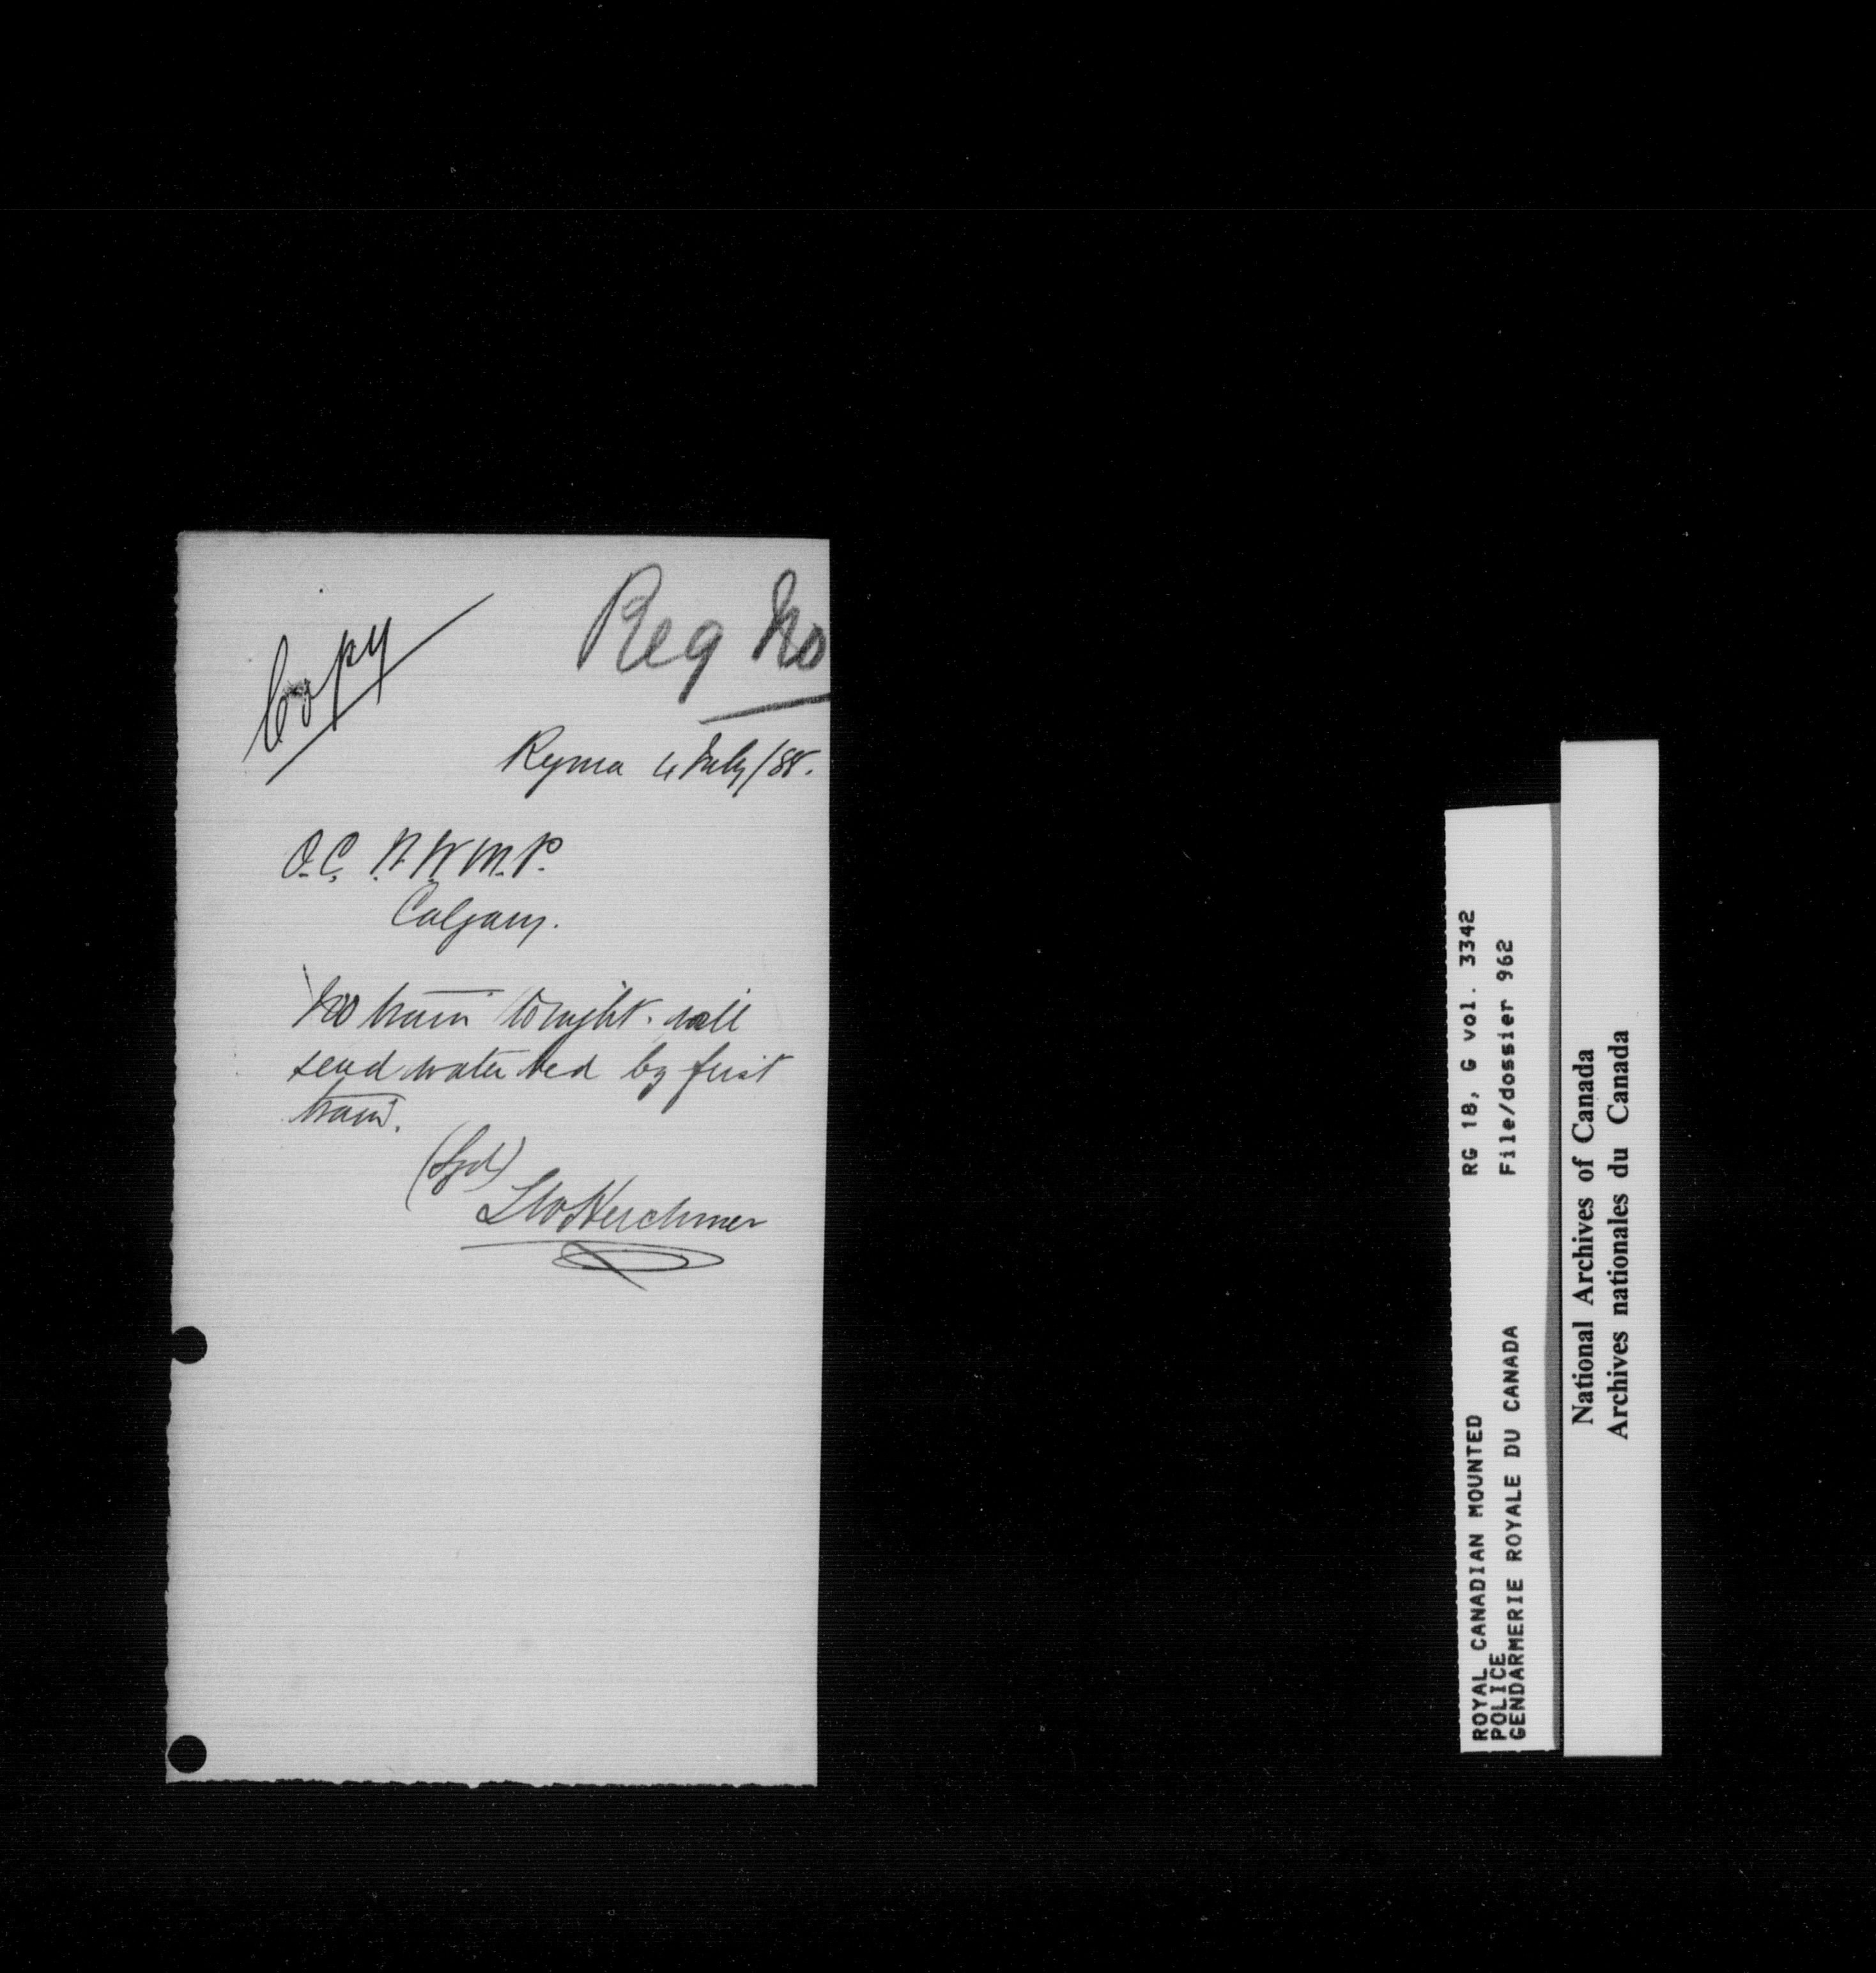 Copy
Reg No
Regina 4 July/88.
O.C. N.W.M.P.
Calgary.
No train tonight. will
send water bed by first
train.
(Sgd)
L W Herchmer
RG 18, G vol. 3342
File/dossier 962
ROYAL CANADIAN MOUNTED
POLICE
GENDARMERIE ROYALE DU CANADA
National Archives of Canada
Archives nationales du Canada